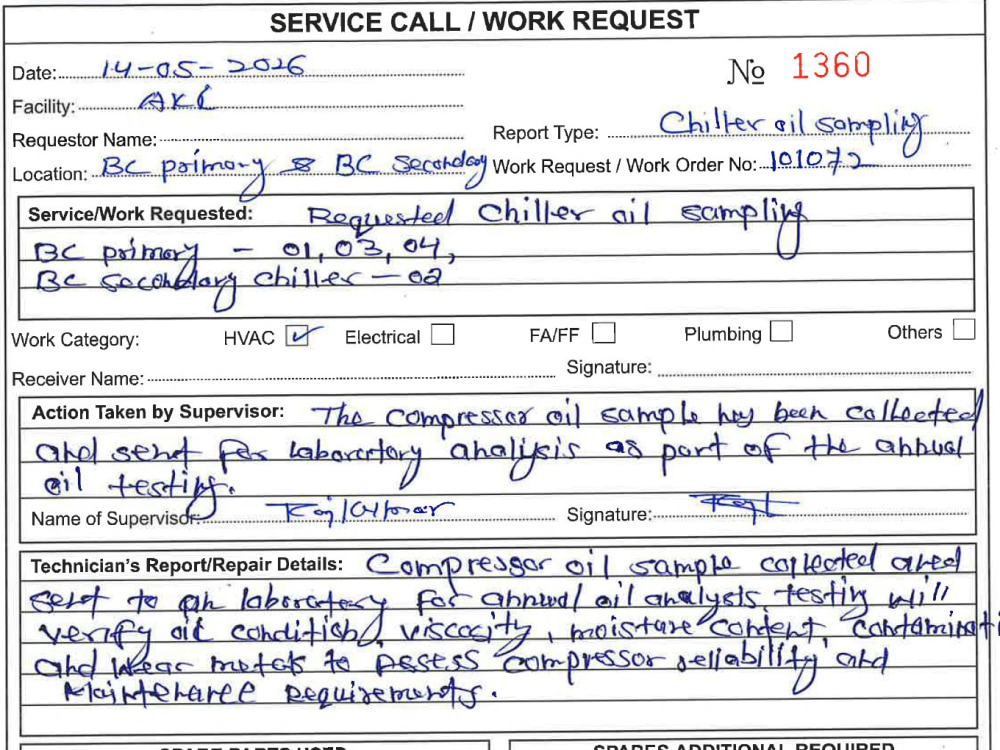 SERVICE CALL / WORK REQUEST
Date: 14-05-2026
№ 1360
Facility: AKC
Requestor Name:
Report Type: Chiller oil sampling
Location: BC primary & BC Secondary
Work Request / Work Order No: 101072
Service/Work Requested: Requested chiller oil sampling
BC primary - 01, 03, 04,
BC secondary chiller - 02
Work Category: HVAC ✓ Electrical FA/FF Plumbing Others
Receiver Name: Signature:
Action Taken by Supervisor: The compressor oil sample has been collected
and sent for laboratory analysis as part of the annual
oil testing.
Name of Supervisor: Signature:
Technician's Report/Repair Details: Compressor oil sample collected and
sent to an laboratory for annual oil analysis, testing will
verify oil condition, viscosity, moisture content, contaminati
and wear metals to assess compressor reliability and
Maintenance requirements.
SPARE PARTS USED
SPARES ADDITIONAL REQUIRED